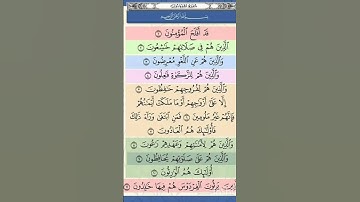 سورة المؤمنون
بسم الله الرحمن الرحيم
قَدْ أَفْلَحَ الْمُؤْمِنُونَ ١
الَّذِينَ هُمْ فِي صَلَاتِهِمْ خَاشِعُونَ ٢
وَالَّذِينَ هُمْ عَنِ اللَّغْوِ مُعْرِضُونَ ٣
وَالَّذِينَ هُمْ لِلزَّكَاةِ فَاعِلُونَ ٤
وَالَّذِينَ هُمْ لِفُرُوجِهِمْ حَافِظُونَ ٥
إِلَّا عَلَىٰ أَزْوَاجِهِمْ أَوْ مَا مَلَكَتْ أَيْمَانُهُمْ
فَإِنَّهُمْ غَيْرُ مَلُومِينَ ٦ فَمَنِ ابْتَغَىٰ وَرَاءَ ذَٰلِكَ
فَأُولَٰئِكَ هُمُ الْعَادُونَ ٧
وَالَّذِينَ هُمْ لِأَمَانَاتِهِمْ وَعَهْدِهِمْ رَاعُونَ ٨
وَالَّذِينَ هُمْ عَلَىٰ صَلَوَاتِهِمْ يُحَافِظُونَ ٩
أُولَٰئِكَ هُمُ الْوَارِثُونَ ١٠
يَرِثُونَ الْفِرْدَوْسَ هُمْ فِيهَا خَالِدُونَ ١١